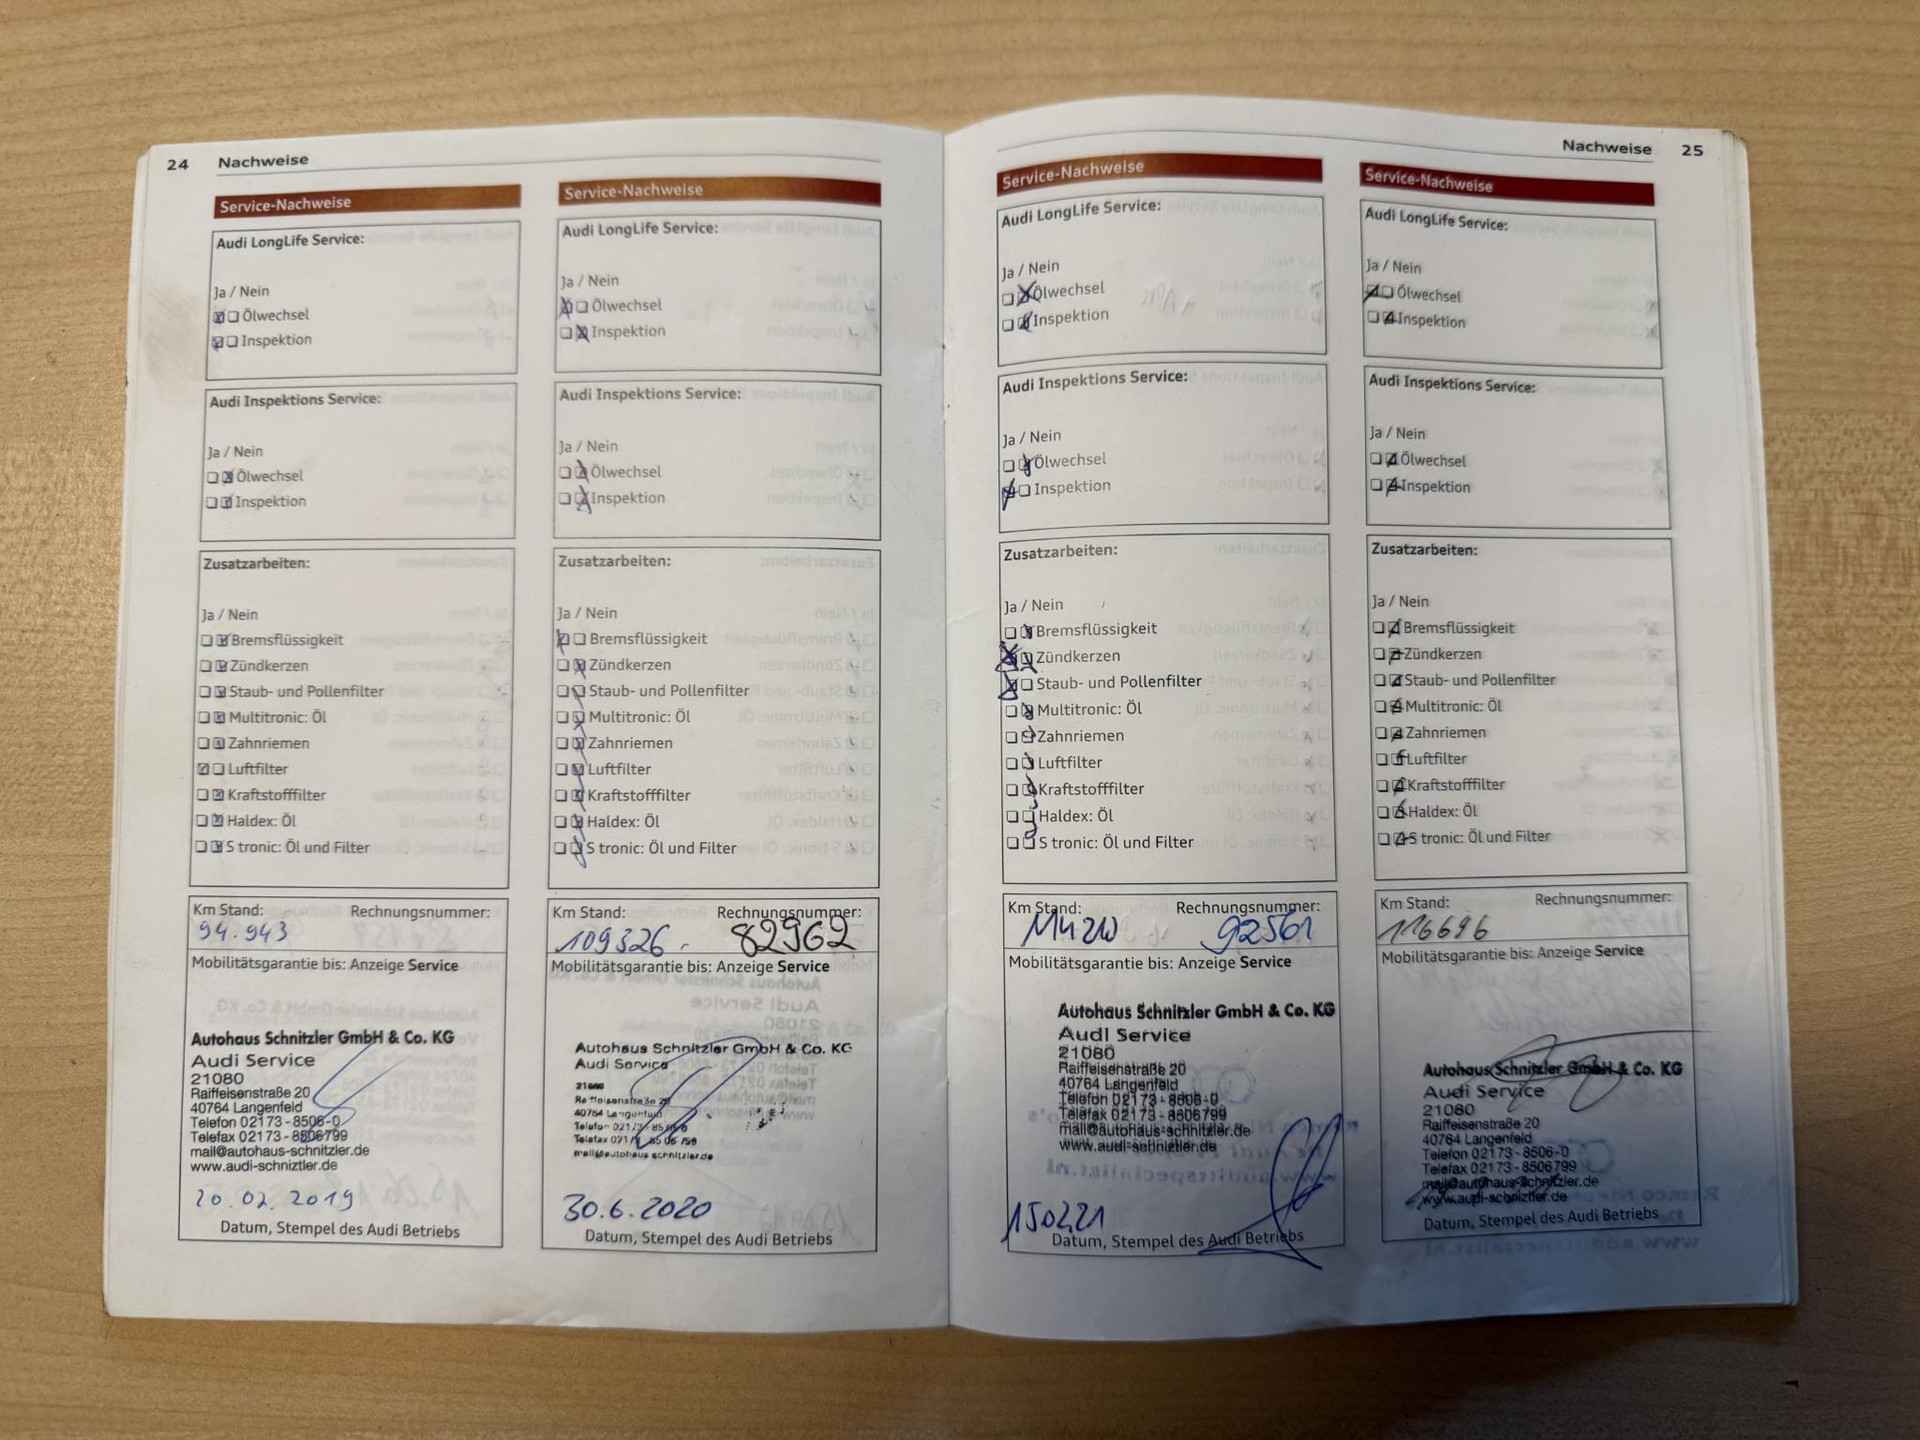 24 Nachweise
Service-Nachweise
Audi LongLife Service:
Ja / Nein
Ölwechsel
Inspektion
Audi Inspektions Service:
Ja / Nein
Ölwechsel
Inspektion
Zusatzarbeiten:
Ja / Nein
Bremsflüssigkeit
Zündkerzen
Staub- und Pollenfilter
Multitronic: Öl
Zahnriemen
Luftfilter
Kraftstofffilter
Haldex: Öl
S tronic: Öl und Filter
Km Stand: Rechnungsnummer:
94.943
Mobilitätsgarantie bis: Anzeige Service
Autohaus Schnitzler GmbH & Co. KG
Audi Service
21080
Raiffeisenstraße 20
40764 Langenfeld
Telefon 02173-8506-0
Telefax 02173-8506799
mail@autohaus-schnitzler.de
www.audi-schniztler.de
20.02.2019
Datum, Stempel des Audi Betriebs
Service-Nachweise
Audi LongLife Service:
Ja / Nein
Ölwechsel
Inspektion
Audi Inspektions Service:
Ja / Nein
Ölwechsel
Inspektion
Zusatzarbeiten:
Ja / Nein
Bremsflüssigkeit
Zündkerzen
Staub- und Pollenfilter
Multitronic: Öl
Zahnriemen
Luftfilter
Kraftstofffilter
Haldex: Öl
S tronic: Öl und Filter
Km Stand: Rechnungsnummer:
109326 82962
Mobilitätsgarantie bis: Anzeige Service
Autohaus Schnitzler GmbH & Co. KG
Audi Service
21080
Raiffeisenstraße 20
40764 Langenfeld
Telefon 02173-8506
Telefax 02173-8506799
mail@autohaus-schnitzler.de
30.6.2020
Datum, Stempel des Audi Betriebs
Nachweise 25
Service-Nachweise
Audi LongLife Service:
Ja / Nein
Ölwechsel
Inspektion
Audi Inspektions Service:
Ja / Nein
Ölwechsel
Inspektion
Zusatzarbeiten:
Ja / Nein
Bremsflüssigkeit
Zündkerzen
Staub- und Pollenfilter
Multitronic: Öl
Zahnriemen
Luftfilter
Kraftstofffilter
Haldex: Öl
S tronic: Öl und Filter
Km Stand: Rechnungsnummer:
92561
Mobilitätsgarantie bis: Anzeige Service
Autohaus Schnitzler GmbH & Co. KG
Audi Service
21080
Raiffeisenstraße 20
40764 Langenfeld
Telefon 02173-8506-0
Telefax 02173-8506799
mail@autohaus-schnitzler.de
www.audi-schniztler.de
150221
Datum, Stempel des Audi Betriebs
Service-Nachweise
Audi LongLife Service:
Ja / Nein
Ölwechsel
Inspektion
Audi Inspektions Service:
Ja / Nein
Ölwechsel
Inspektion
Zusatzarbeiten:
Ja / Nein
Bremsflüssigkeit
Zündkerzen
Staub- und Pollenfilter
Multitronic: Öl
Zahnriemen
Luftfilter
Kraftstofffilter
Haldex: Öl
S tronic: Öl und Filter
Km Stand: Rechnungsnummer:
116696
Mobilitätsgarantie bis: Anzeige Service
Autohaus Schnitzler GmbH & Co. KG
Audi Service
21080
Raiffeisenstraße 20
40764 Langenfeld
Telefon 02173-8506-0
Telefax 02173-8506799
mail@autohaus-schnitzler.de
www.audi-schniztler.de
Datum, Stempel des Audi Betriebs